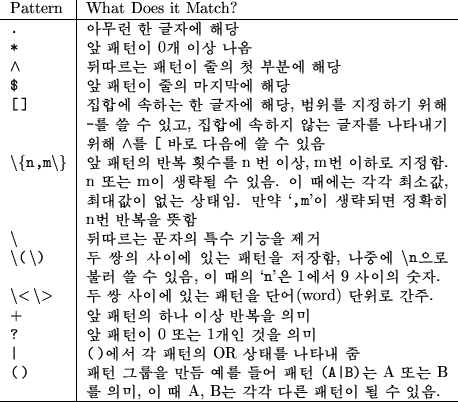 Pattern What Does it Match?
. 아무런 한 글자에 해당
* 앞 패턴이 0개 이상 나옴
^ 뒤따르는 패턴이 줄의 첫 부분에 해당
$ 앞 패턴이 줄의 마지막에 해당
[] 집합에 속하는 한 글자에 해당, 범위를 지정하기 위해
-를 쓸 수 있고, 집합에 속하지 않는 글자를 나타내기
위해 ^를 [ 바로 다음에 쓸 수 있음
\{n,m\} 앞 패턴의 반복 횟수를 n 번 이상, m번 이하로 지정함.
n 또는 m이 생략될 수 있음. 이 때에는 각각 최소값,
최대값이 없는 상태임. 만약 ‘,m’이 생략되면 정확히
n번 반복을 뜻함
\ 뒤따르는 문자의 특수 기능을 제거
\(\) 두 쌍의 사이에 있는 패턴을 저장함, 나중에 \n으로
불러 쓸 수 있음, 이 때의 ‘n’은 1에서 9 사이의 숫자.
\<\> 두 쌍 사이에 있는 패턴을 단어(word) 단위로 간주.
+ 앞 패턴의 하나 이상 반복을 의미
? 앞 패턴이 0 또는 1개인 것을 의미
| ()에서 각 패턴의 OR 상태를 나타내 줌
() 패턴 그룹을 만듬 예를 들어 패턴 (A|B)는 A 또는 B
를 의미, 이 때 A, B는 각각 다른 패턴이 될 수 있음.